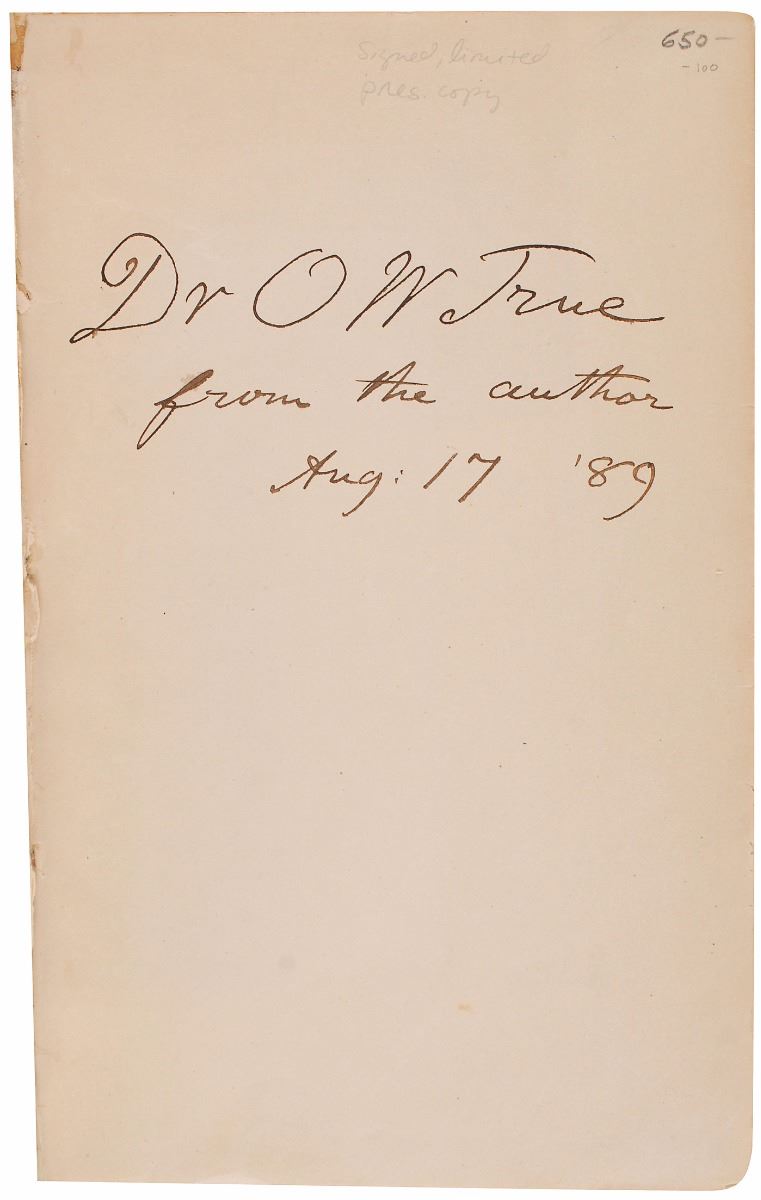 Signed, limited 650–
pres. copy –100
Dr O W True
from the author
Aug: 17 '89